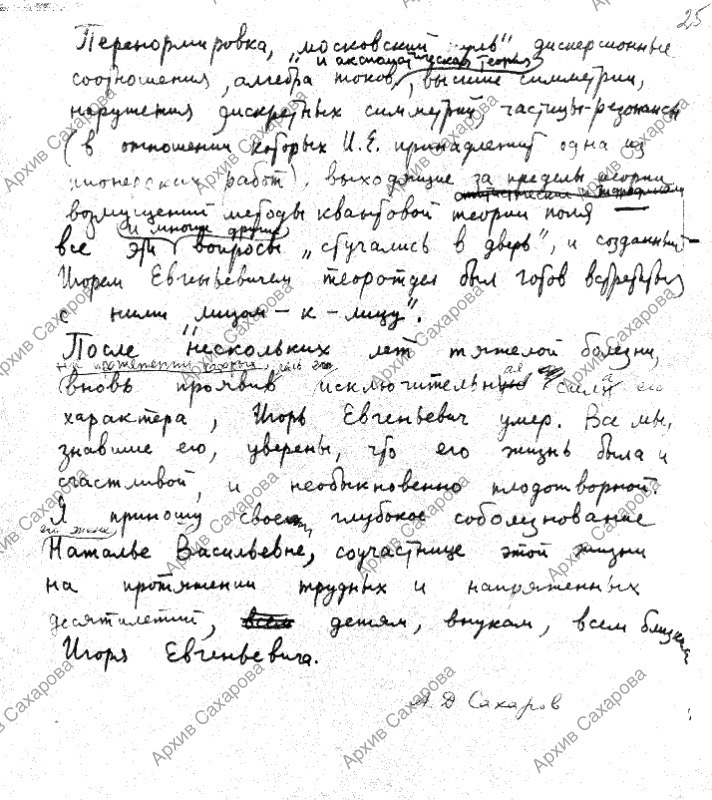 25
Перенормировка, „московский нуль" дисперсионные
и аксиоматическая теория
соотношения, алгебра токов, высшие симметрии,
нарушения дискретных симметрий, частицы-резонансы
(в отношении которых И.Е. принадлежит одна из
пионерских работ), выходящие за пределы теории
возмущений методы квантовой теории поля —
и многие другие
все эти вопросы „стучались в дверь", и созданный
Игорем Евгеньевичем теоротдел был готов встретиться
с ними лицом-к-лицу".
После нескольких лет тяжелой болезни,
на протяжении которой
вновь проявив исключительн сила его
характера, Игорь Евгеньевич умер. Все мы,
знавшие его, уверены, что его жизнь была и
счастливой, и необыкновенно плодотворной.
Я приношу свое глубокое соболезнование
его жене
Наталье Васильевне, соучастнице этой жизни
на протяжении трудных и напряженных
десятилетий, всем детям, внукам, всем близким
Игоря Евгеньевича.
А Д Сахаров
Архив Сахарова